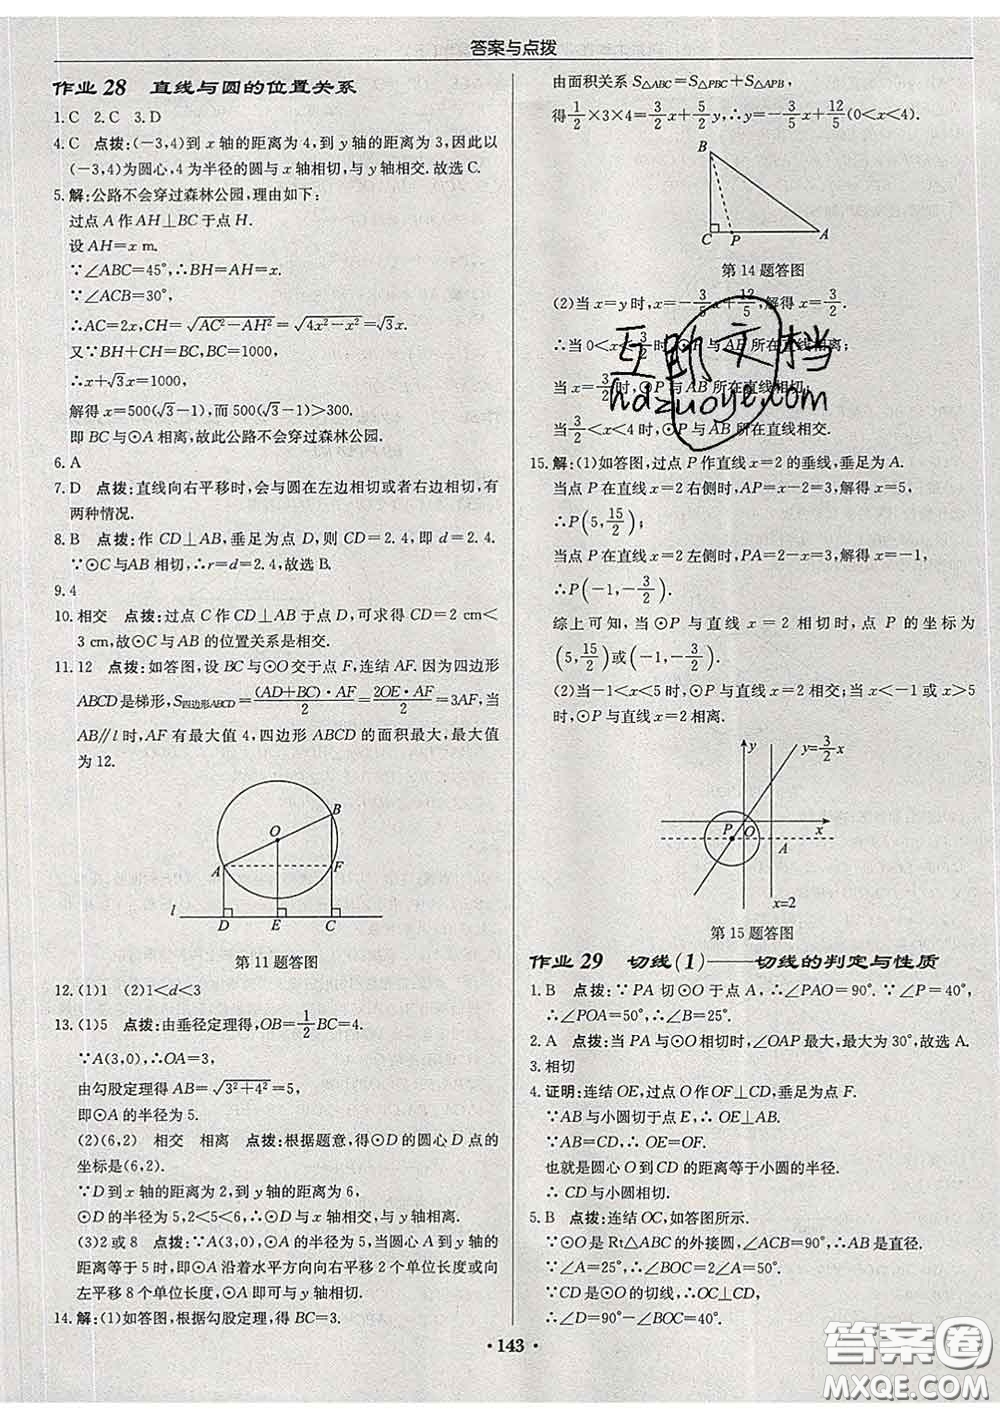 答案与点拨
作业28 直线与圆的位置关系
1.C 2.C 3.D
4.C 点拨:(-3,4)到x轴的距离为4,到y轴的距离为3,因此以
(-3,4)为圆心,4为半径的圆与x轴相切,与y轴相交.故选C.
5.解:公路不会穿过森林公园,理由如下:
过点A作AH⊥BC于点H.
设AH=x m.
∵∠ABC=45°,∴BH=AH=x.
∵∠ACB=30°,
∴AC=2x,CH=√(AC²-AH²)=√(4x²-x²)=√3x.
又∵BH+CH=BC,BC=1000,
∴x+√3x=1000,
解得x=500(√3-1),而500(√3-1)>300.
即BC与⊙A相离,故此公路不会穿过森林公园.
6.A
7.D 点拨:直线向右平移时,会与圆在左边相切或者右边相切,有
两种情况.
8.B 点拨:作CD⊥AB,垂足为点D,则CD=2.4,即d=2.4.
∵⊙C与AB相切,∴r=d=2.4,故选B.
9.4
10.相交 点拨:过点C作CD⊥AB于点D,可求得CD=2 cm<
3 cm,故⊙C与AB的位置关系是相交.
11.12 点拨:如答图,设BC与⊙O交于点F,连结AF.因为四边形
ABCD是梯形,S四边形ABCD=(AD+BC)·AF/2=2OE·AF/2=3AF,当
AB∥l时,AF有最大值4,四边形ABCD的面积最大,最大值
为12.
B
O
A
F
l
D E C
第11题答图
12.(1)1 (2)1<d<3
13.(1)5 点拨:由垂径定理得,OB=1/2BC=4.
∵A(3,0),∴OA=3,
由勾股定理得AB=√(3²+4²)=5,
即⊙A的半径为5.
(2)(6,2) 相交 相离 点拨:根据题意,得⊙D的圆心D点的
坐标是(6,2).
∵D到x轴的距离为2,到y轴的距离为6,
⊙D的半径为5,2<5<6,∴⊙D与x轴相交,与y轴相离.
(3)2或8 点拨:∵A(3,0),⊙A的半径为5,当圆心A到y轴的
距离等于5时,即⊙A沿着水平方向向右平移2个单位长度或向
左平移8个单位长度,⊙A即可与y轴相切.
14.解:(1)如答图,根据勾股定理,得BC=3.
由面积关系S△ABC=S△PBC+S△APB,
得1/2×3×4=3/2x+5/2y,∴y=-3/5x+12/5(0<x<4).
B
C P A
第14题答图
(2)当x=y时,x=-3/5x+12/5,解得x=3/2.
∴当0<x<3/2时,⊙P与AB所在直线相离;
当x=3/2时,⊙P与AB所在直线相切;
当3/2<x<4时,⊙P与AB所在直线相交.
互助文档
hdzuoye.com
15.解:(1)如答图,过点P作直线x=2的垂线,垂足为A.
当点P在直线x=2右侧时,AP=x-2=3,解得x=5,
∴P(5,15/2);
当点P在直线x=2左侧时,PA=2-x=3,解得x=-1,
∴P(-1,-3/2).
综上可知,当⊙P与直线x=2相切时,点P的坐标为
(5,15/2)或(-1,-3/2).
(2)当-1<x<5时,⊙P与直线x=2相交;当x<-1或x>5
时,⊙P与直线x=2相离.
y y=3/2x
P O x
A
x=2
第15题答图
作业29 切线(1)——切线的判定与性质
1.B 点拨:∵PA切⊙O于点A,∴∠PAO=90°.∵∠P=40°,
∴∠POA=50°,∴∠B=25°.
2.A 点拨:当PA与⊙O相切时,∠OAP最大,最大为30°,故选A.
3.相切
4.证明:连结OE,过点O作OF⊥CD,垂足为点F.
∵AB与小圆切于点E,∴OE⊥AB.
∵AB=CD,∴OE=OF.
也就是圆心O到CD的距离等于小圆的半径.
∴CD与小圆相切.
5.B 点拨:连结OC,如答图所示.
∵⊙O是Rt△ABC的外接圆,∠ACB=90°,∴AB是直径.
∵∠A=25°,∴∠BOC=2∠A=50°.
∵CD是⊙O的切线,∴OC⊥CD,
∴∠D=90°-∠BOC=40°.
·143·
答案圈
MXQE.COM